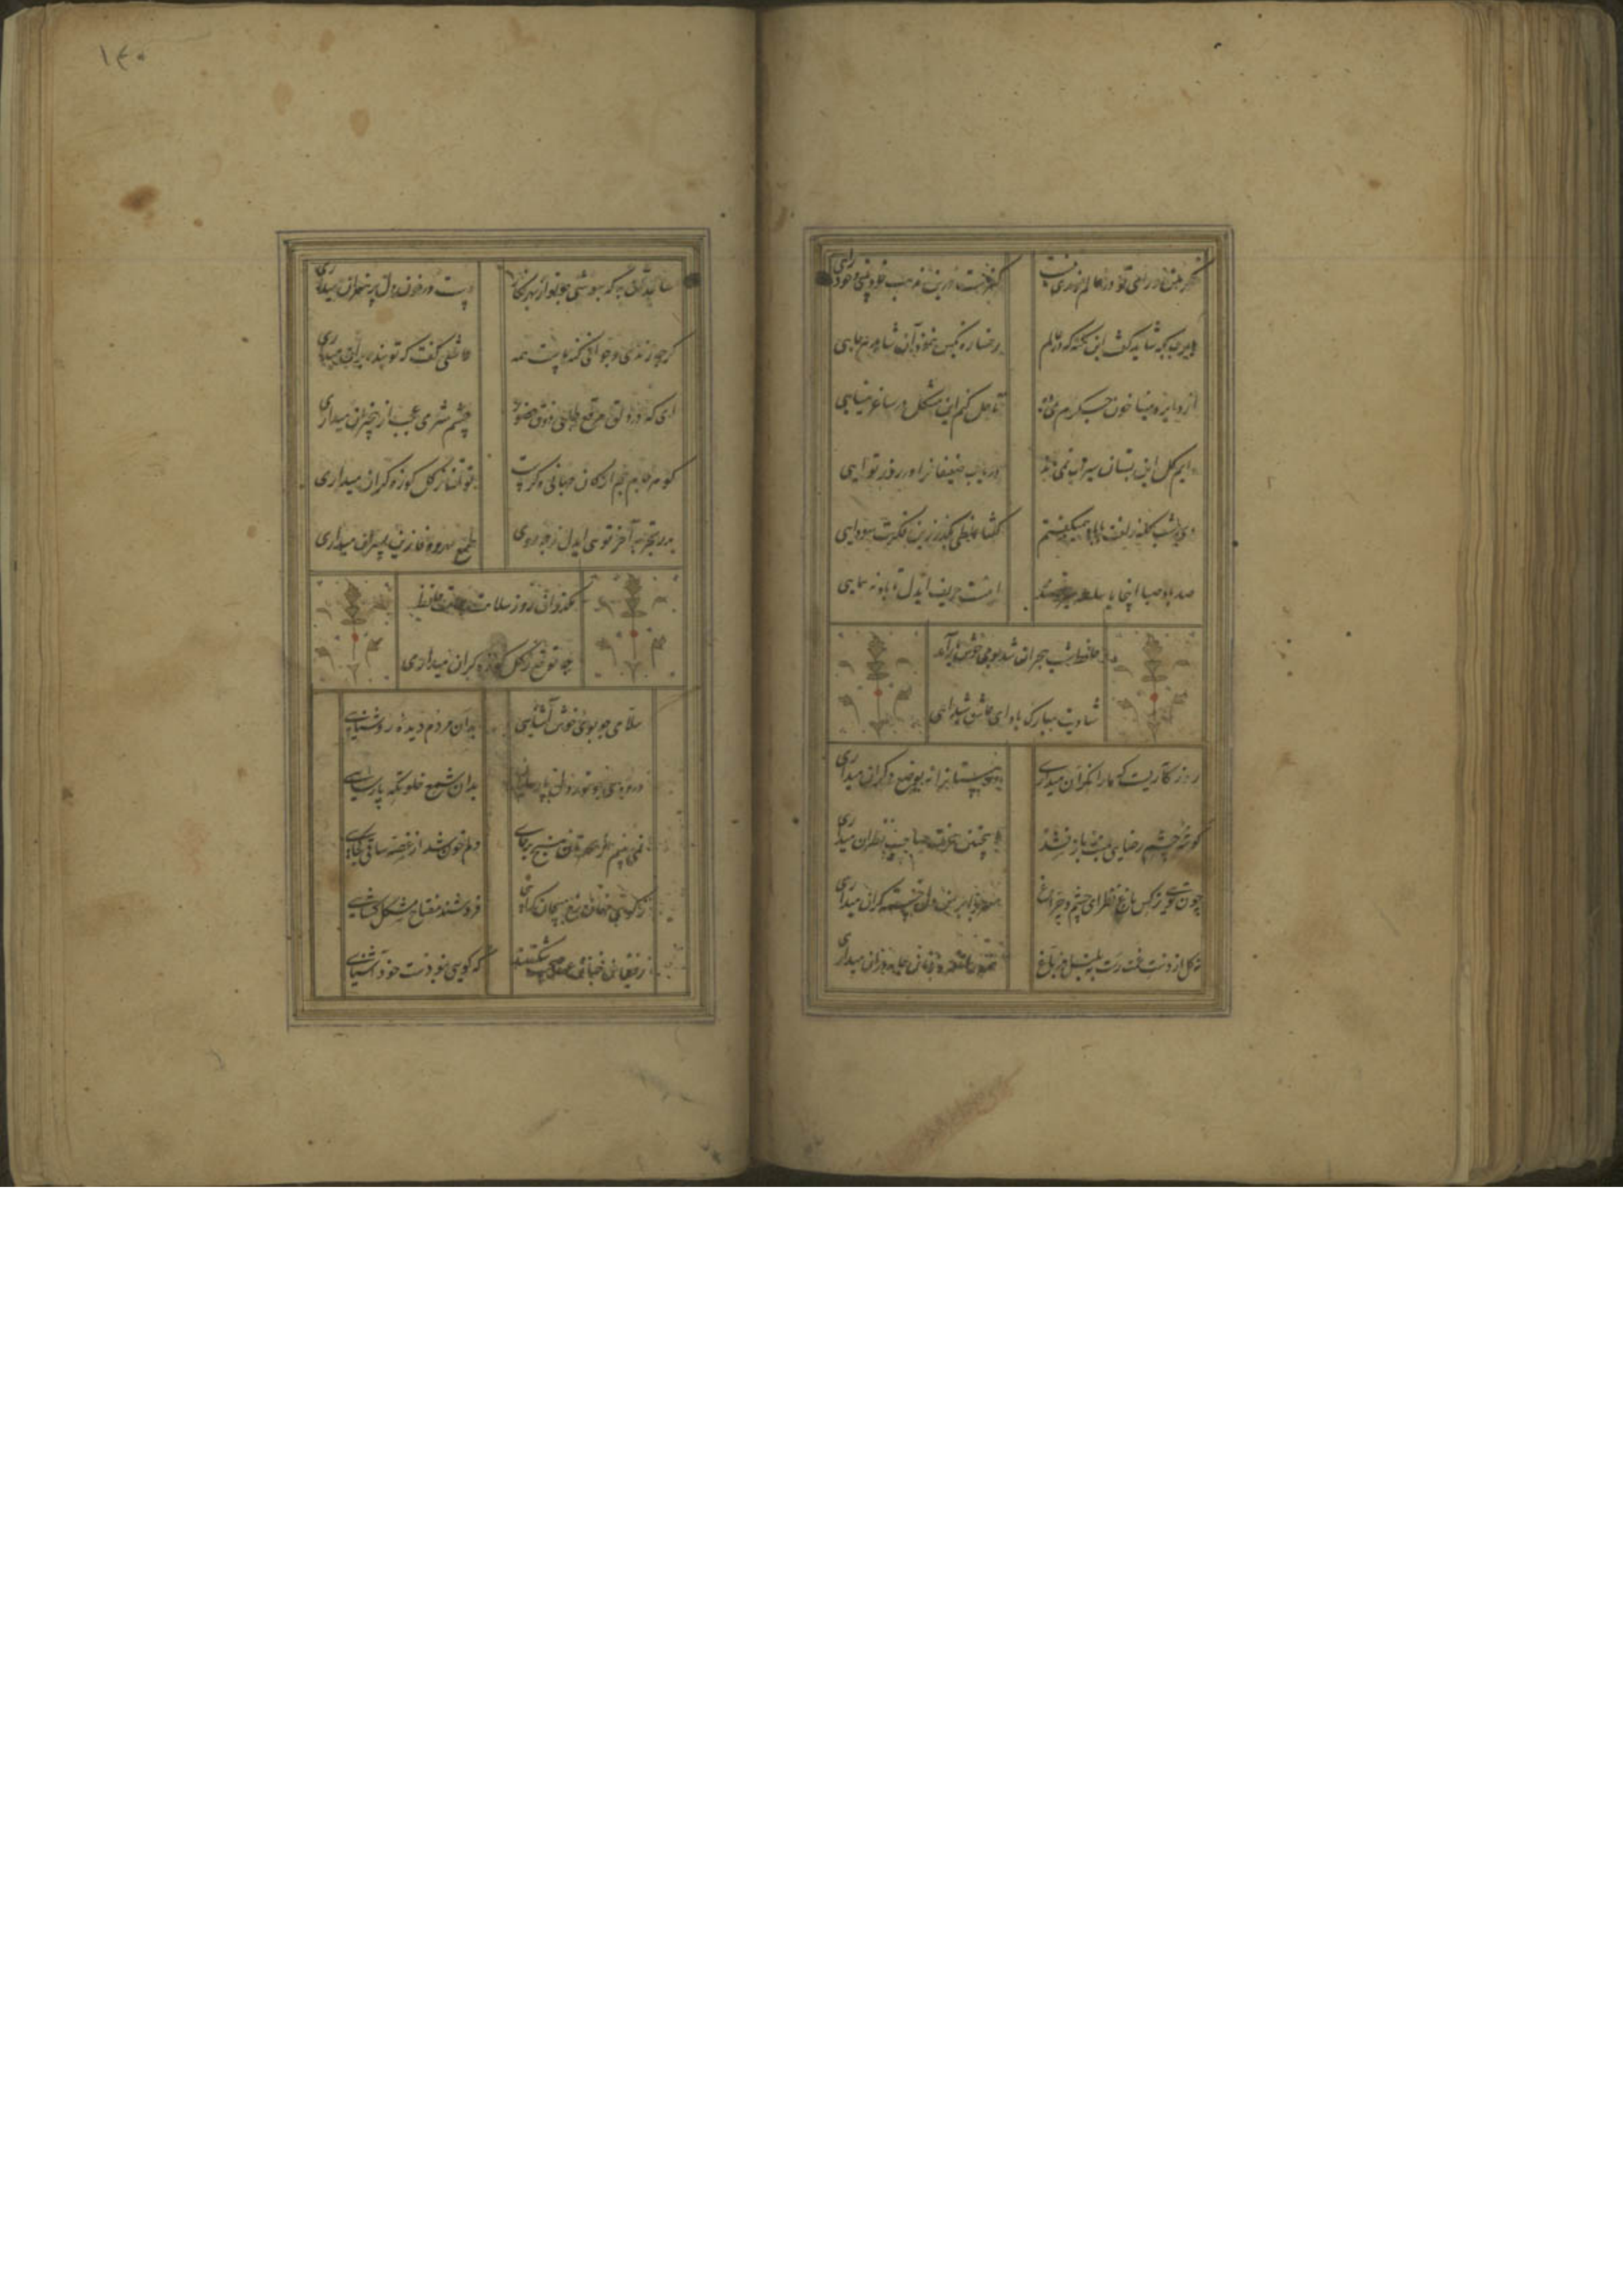 فکر خود و رای خود در عالم رندی نیست کفرست درین مذهب خودبینی و خودرایی
یارب بکه شاید گفت این نکته که در عالم رخساره بکس ننمود آن شاهد هرجایی
دایره مینا خون جگرم می ده تا حل کنم این مشکل در ساغر مینایی
دایم گل این بستان سیراب نمی ماند دریاب ضعیفانرا در روز توانایی
دی شب گله زلفت با باد همیگفتم گفتا غلطی بگذر زین فکرت سودایی
صد باد صبا اینجا با سلسله میرقصند اینست حریف ایدل تا باد نه پیمایی
حافظ شب هجران شد بوی خوش یار آمد
شادیت مبارک باد ای عاشق شیدایی
روزگاریست که ما را نگران میداری نه بوضع دگران میداری
گوشه چشم رضایی بمنت باز نشد اینچنین عزت صاحب نظران میداری
چون تویی نرگس باغ نظر ای چشم و چراغ سر چرا بر من دلخسته گران میداری
نه گل از دست غمت رست نه بلبل در باغ همه را نعره زنان جامه دران میداری
۱۴۰
ساعد آن به که بپوشی چو تو از بهر نگار دست در خون دل پر هنران میداری
گرچه رندی و خرابی گنه ماست همه عاشقی گفت که تو بنده بر آن میداری
ای که در دلق مرقع طلبی ذوق حضور چشم سری عجب از بیخبران میداری
گوهر جام جم از کان جهانی دگرست تو تمنا ز گل کوزه گران میداری
پدر تجربه آخر تویی ایدل ز چه روی طمع مهر و وفا زین پسران میداری
مگذران روز سلامت بملامت حافظ
چه توقع ز گل کوزه گران میداری
سلامی چو بوی خوش آشنایی بدان مردم دیده روشنایی
درودی چو نور دل پارسایان بدان شمع خلوتگه پارسایی
نمی بینم از همدمان هیچ برجای دلم خون شد از غصه ساقی کجایی
ز کوی مغان رخ مپیچان که آنجا فروشند مفتاح مشکل گشایی
رفیقان چنان عهد صحبت شکستند که گویی نبودست خود آشنایی